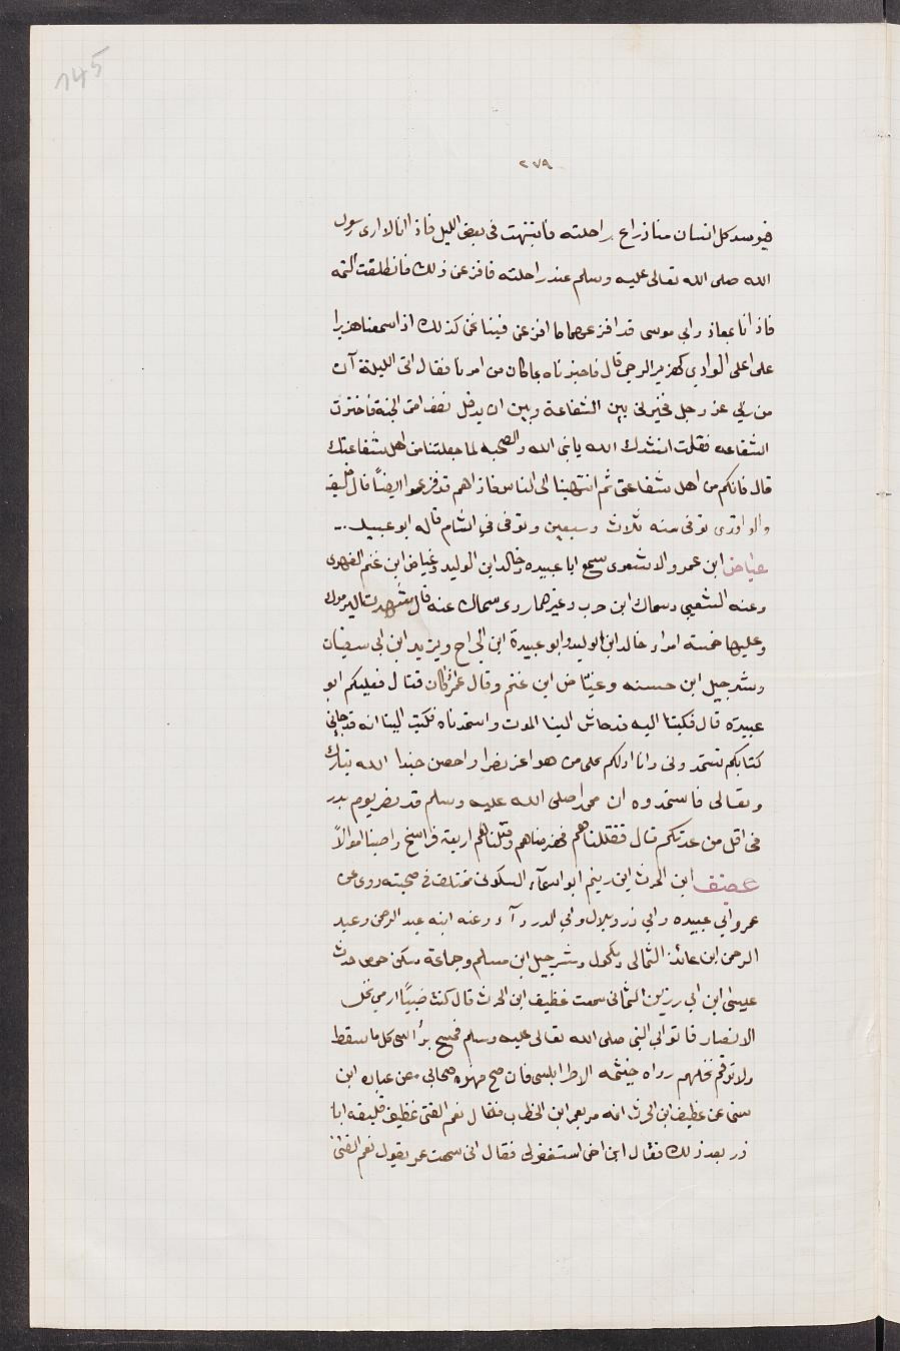 145
٢٧٩
فيوسد كل انسان منا ذراع راحلته فانتبهت في بعض الليل فاذا انا لا ارى رسول
الله صلى الله تعالى عليه وسلم عند راحلته فافزعني ذلك فانطلقت التمه
فاذا انا بمعاذ وابي موسى قد افزعهما ما افزعني فبينا نحن كذلك اذا سمعنا هزيرا
على اعلى الوادي كهزير الرحى قال فاخبرناه بما كان من امرنا فقال اتى الليلة آت
من ربي عز وجل فخيرني بين الشفاعة وبين ان يدخل نصف امتي الجنة فاخترت
الشفاعه فقلت انشدك الله يا نبي الله والصحبه لما جعلتنا من اهل شفاعتك
قال فانكم من اهل شفاعتي ثم انتهينا الى الناس فاذا هم قد فزعوا ايضًا قال خليفه
والواقدى توفى سنه ثلاث وسبعين وتوفى في الشام قاله ابو عبيد
عياض ابن عمرو الاشعرى سمع ابا عبيده وخالد ابن الوليد وعياض ابن غنم الفهرى
وعنه الشعبي وسماك ابن حرب وغيرهما روى سماك عنه قال شهدت اليرموك
وعليها خمسه امراء خالد ابن الوليد وابو عبيدة ابن الجراح ويزيد ابن ابى سفيان
وشرجيل ابن حسنه وعياض ابن غنم وقال عمر اذا كان قتال فعليكم ابو
عبيدة قال فكتبنا اليه قد جاش الينا الموت واستمدناه فكتب الينا انه قد جاني
كتابكم تستمدوني وانا ادلكم على من هو اعز نصرا واحصن جندا الله تبارك
وتعالى فاستمدوه ان محمدا صلى الله عليه وسلم قد نصر يوم بدر
في اقل من عدتكم قال فقتلناهم فهزمناهم وقتلناهم اربعة فراسخ واصبنا اموالاً
ابن الحرث ابن زنيم ابو اسمآء السكونى مختلف في صحبته روى عن
عمر وابي عبيده وابي ذر وبلال وابي الدردآء وعنه ابنه عبد الرحمن وعبد
الرحمن ابن عائذ الثمالى ومكحول وشرجيل ابن مسلم وجماعة سكن حمص حدث
عيسى ابن ابي رزين الثمالى سمعت غظيف ابن الحرث قال كنت صبيًا ارمي نخل
الانصار فاتوا بي النبي صلى الله تعالى عليه وسلم فمسح برأسى كل ما سقط
ولا ترم نخلهم رواه خيثمه الاطرابلسى فان صح فهو صحابي وعن عباده ابن
نسى عن غظيف ابن الحرث انه مر بعمر ابن الخطاب فقال نعم الفتى غظيف فلقيه ابا
ذر بعد ذلك فقال ابن اخى استغفر لى فقال انى سمعت عمر يقول نعم الفتى